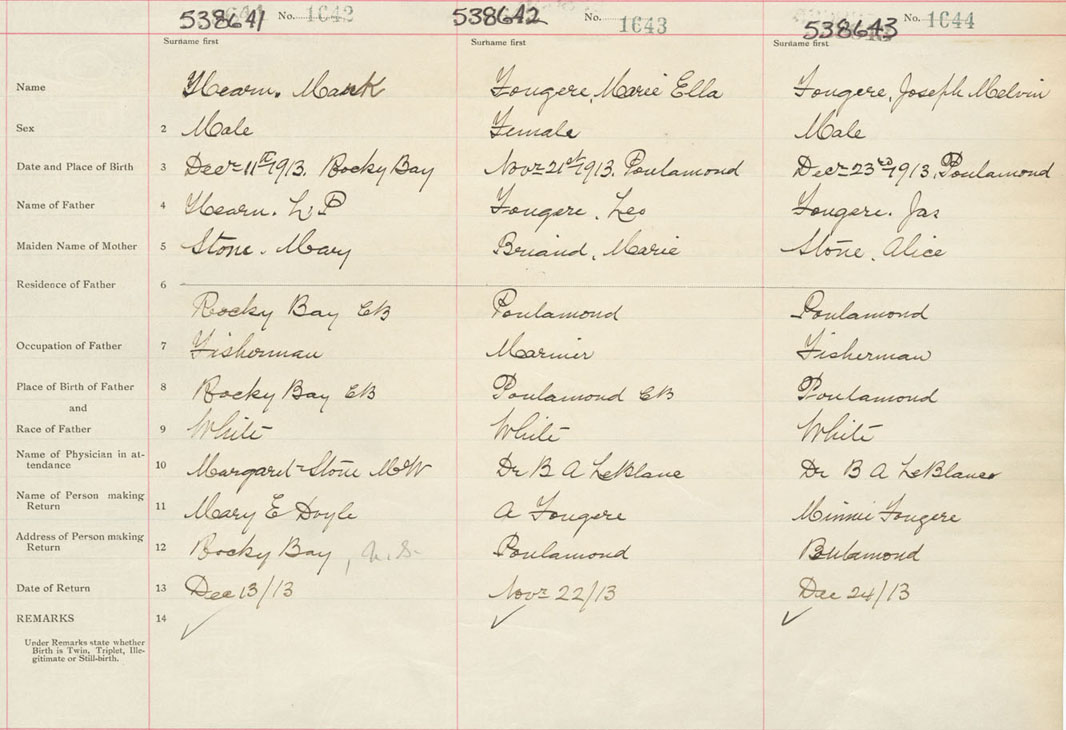 538641 No. 1642 538642 No. 1643 538643 No. 1644
Surname first Surname first Surname first
Name Hearn. Mark Fougere, Marie Ella Fougere, Joseph Melvin
Sex 2 Male Female Male
Date and Place of Birth 3 Decr 11th 1913. Rocky Bay Novr 21st 1913. Poulamond Decr 23rd 1913. Poulamond
Name of Father 4 Hearn. L, P Fougere, Leo Fougere. Jas
Maiden Name of Mother 5 Stone. Mary Briand, Marie Stone, Alice
Residence of Father 6
Rocky Bay CB Poulamond Poulamond
Occupation of Father 7 Fisherman Marinier Fisherman
Place of Birth of Father 8 Rocky Bay CB Poulamond CB Poulamond
and
Race of Father 9 White White White
Name of Physician in at-
tendance 10 Margaret Stone MW Dr B A LeBlanc Dr B A LeBlanc
Name of Person making
Return 11 Mary E Doyle A Fougere Minnie Fougere
Address of Person making
Return 12 Rocky Bay, N.S. Poulamond Poulamond
Date of Return 13 Dec 13/13 Novr 22/13 Dec 24/13
REMARKS 14
Under Remarks state whether
Birth is Twin, Triplet, Ille-
gitimate or Still-birth.